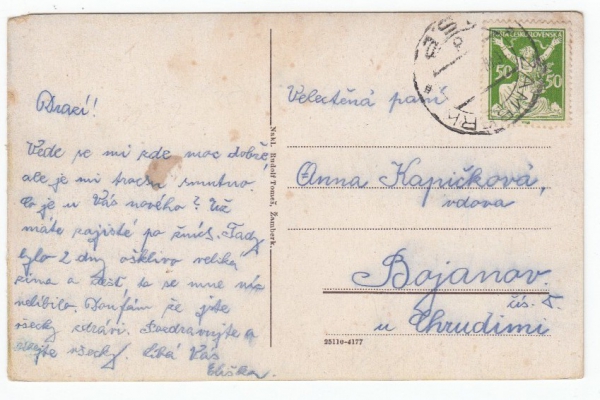 Drazí!
Vede se mi zde moc dobře,
ale je mi trochu smutno.
Co je u Vás nového? Už
máte zajisté po žních. Tady
bylo 2 dny ošklivo veliká
zima a déšť, to se mne nic
nelíbilo. Doufám že jste
všecky zdrávi. Pozdravujte a
všecky. Líbá Vás
Eliška.
Nakl. Rudolf Tomeš, Žamberk.
ČESKOSLOVENSKÁ
50 50
Velectěná paní
Anna Kapičková,
vdova
Bojanov.
čís. 5
u Chrudimi
25110-4177